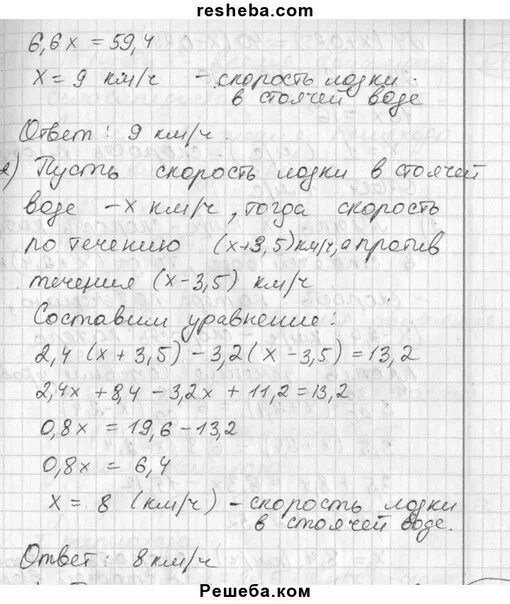 resheba.com
6,6x = 59,4
x = 9 км/ч – скорость лодки
в стоячей воде
Ответ: 9 км/ч.
2) Пусть скорость лодки в стоячей
воде – x км/ч, тогда скорость
по течению (x+3,5) км/ч, а против
течения (x – 3,5) км/ч
Составим уравнение:
2,4 (x + 3,5) – 3,2 (x – 3,5) = 13,2
2,4x + 8,4 – 3,2x + 11,2 = 13,2
0,8x = 19,6 – 13,2
0,8x = 6,4
x = 8 (км/ч) – скорость лодки
в стоячей воде.
Ответ: 8 км/ч
Решеба.com